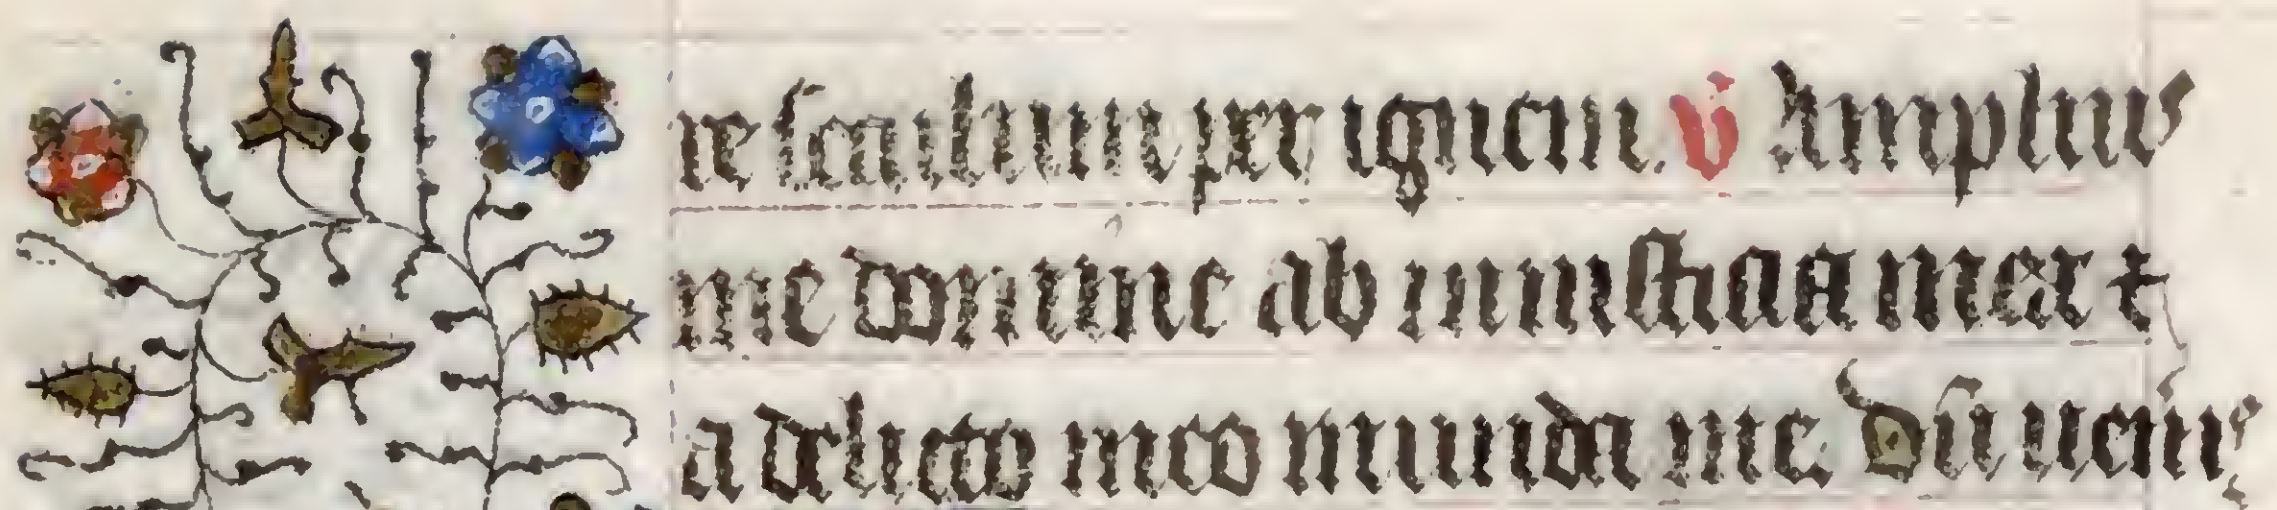 re seculum per ignem. V Amplius
me domine ab iniusticia mea et
a delicto meo munda me. Dū uenēr